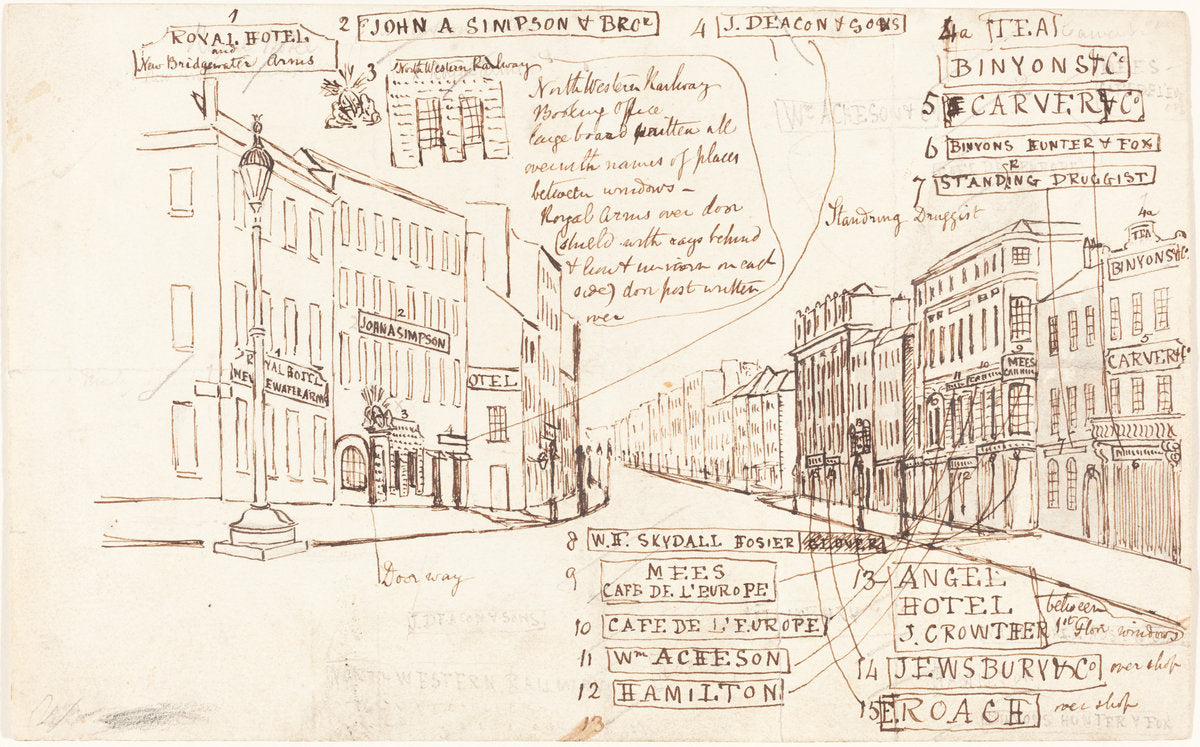 1
ROYAL HOTEL
and
New Bridgewater Arms
2 JOHN A SIMPSON & BROr
4 J. DEACON & SONS
4a TEA
BINYONS & Co
5 CARVER & Co
6 BINYONS HUNTER & FOX
7 STANDRING DRUGGIST
3
North Western Railway
North Western Railway
Booking Office
large board written all
over with names of places
between windows –
Royal Arms over door
(shield with rays behind
& lion & unicorn on each
side) door post written
over
Wm ACHESON &
Standring Druggist
4a
TEA
BINYONS & Co
5
CARVER & Co
6
7
9
MEES
10
11
12
13
15
14
2
JOHN A SIMPSON
1
ROYAL HOTEL
NEW
EWATER ARMS
OTEL
3
4
Door way
J DEACON & SONS
NORTH WESTERN RAILWAY
8 W. H. SKYDALL HOSIER GLOVER
9 MEES
CAFE DE L'EUROPE
10 CAFE DE L'EUROPE
11 Wm ACHESON
12 HAMILTON
13 ANGEL
HOTEL
J. CROWTHER
between
1st Floor windows
14 JEWSBURY & Co over shop
15 ROACH over shop
BINYONS HUNTER & FOX
13